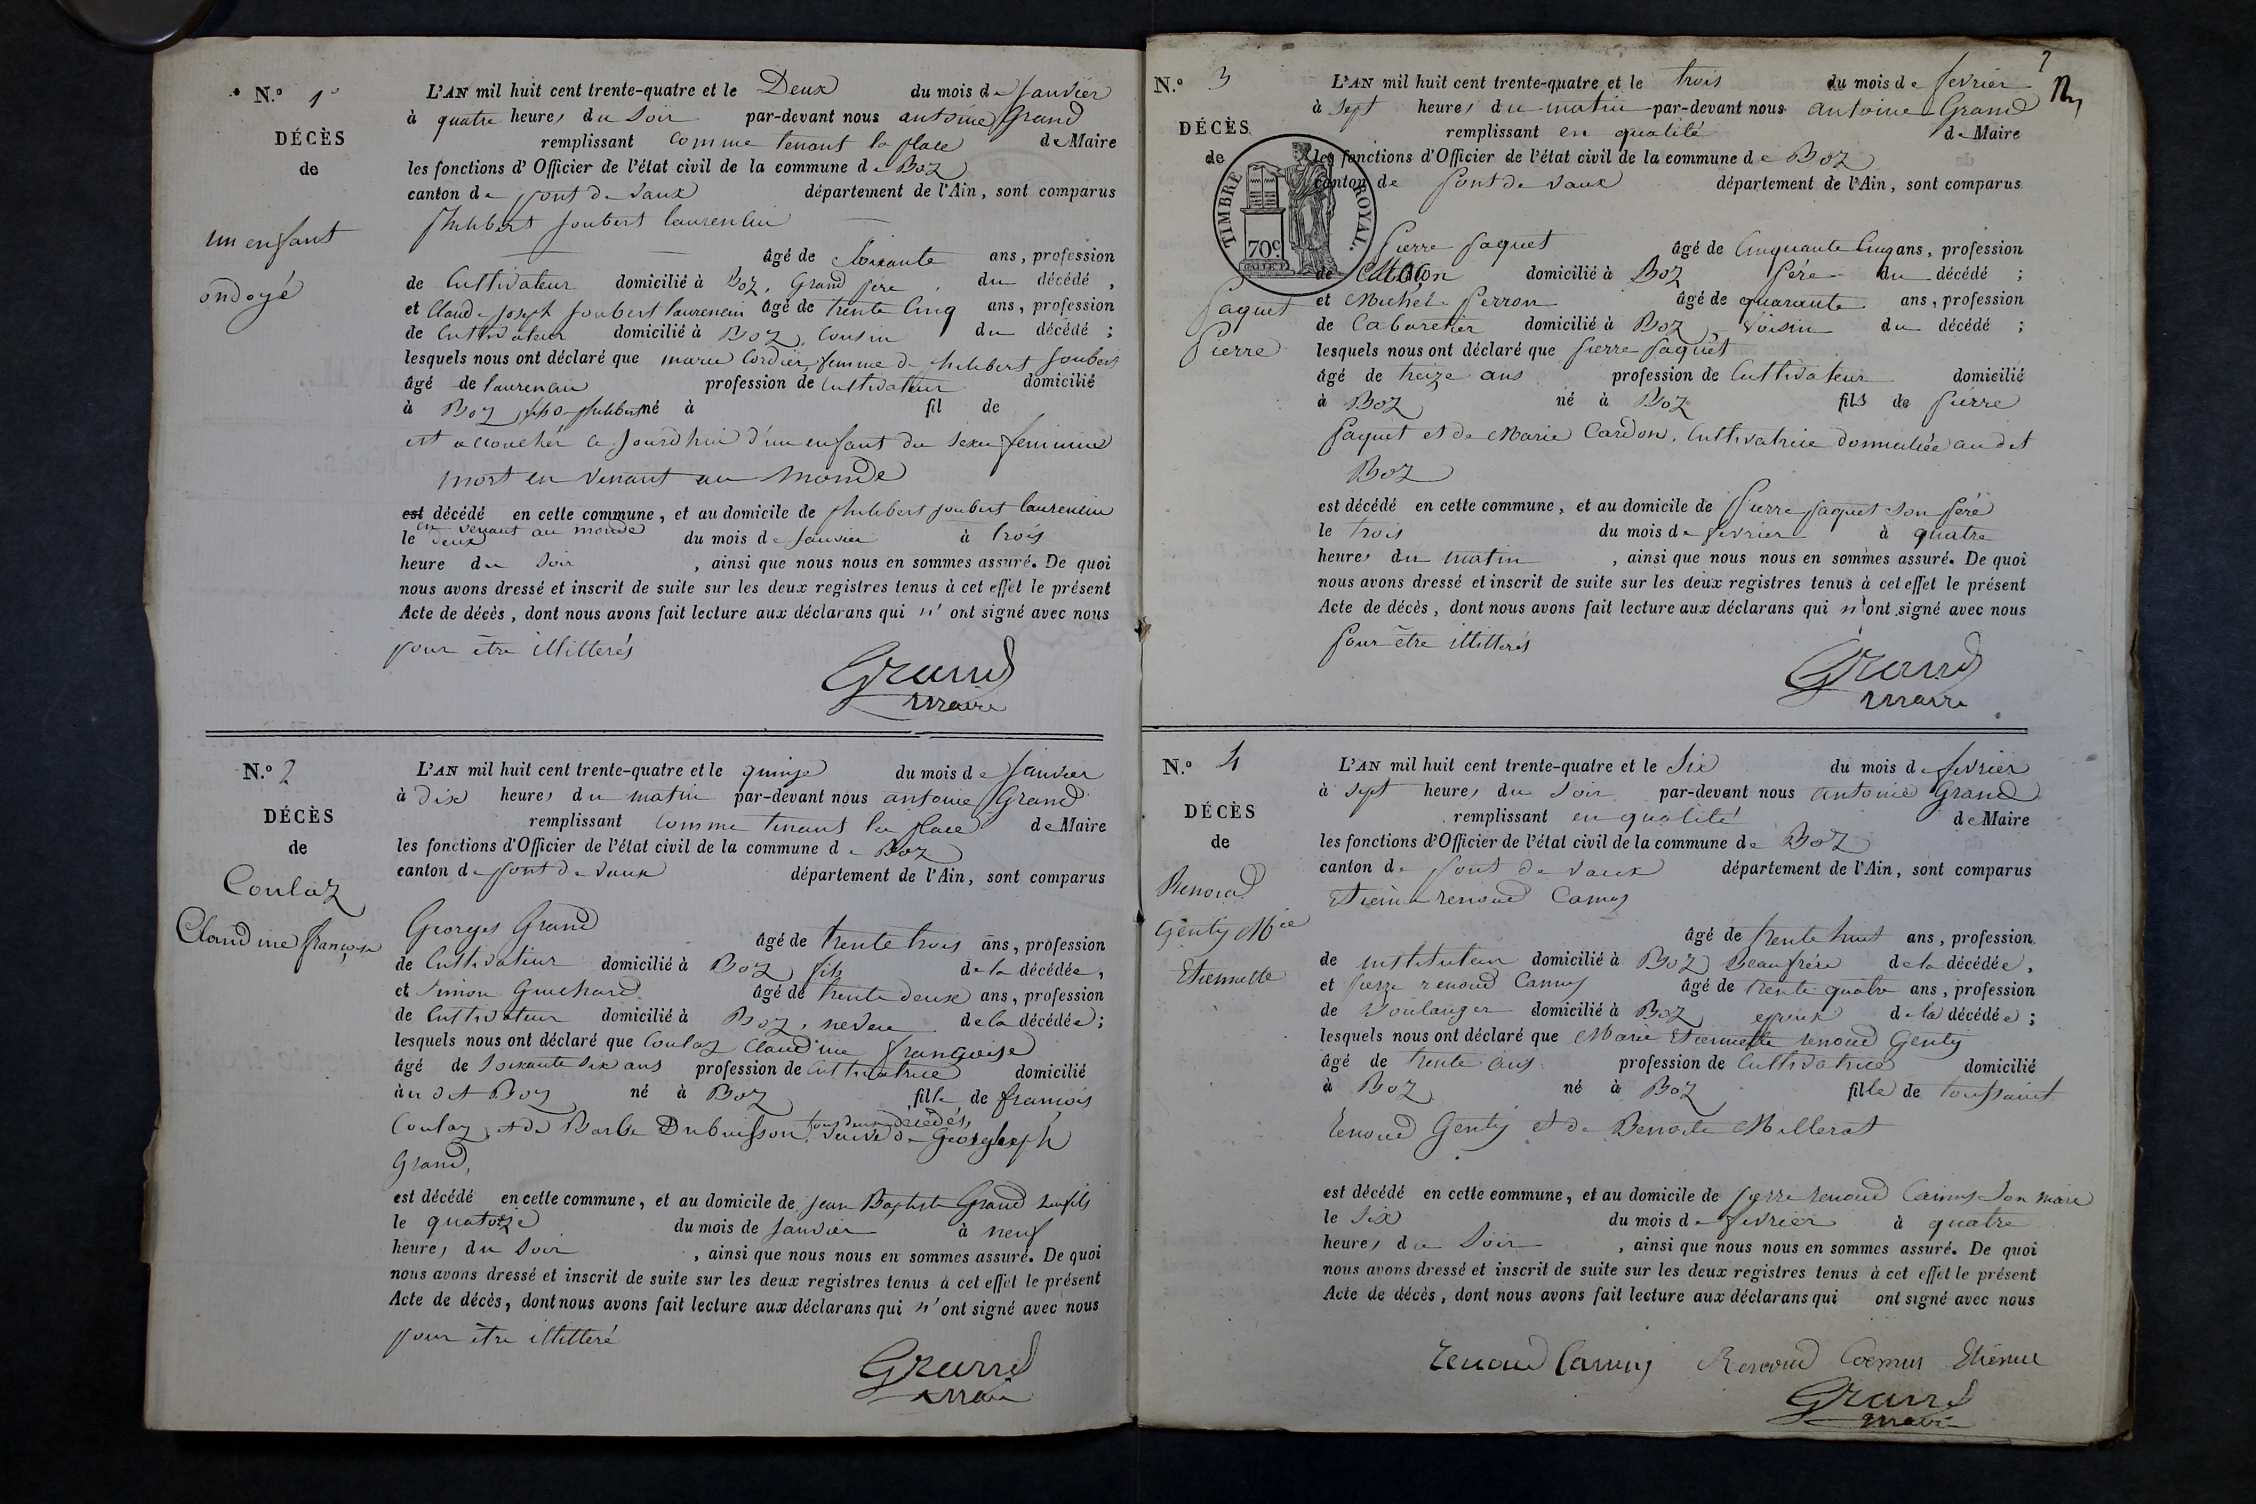 N.° 1°
DÉCÈS
de
un enfant
ondoyé
L'AN mil huit cent trente-quatre et le Deux du mois de Janvier
à quatre heures du Soir par-devant nous antoine Grand
remplissant comme tenant la place de Maire
les fonctions d'Officier de l'état civil de la commune de Boz
canton de pont de vaux département de l'Ain, sont comparus
Philibert Joubert laurencin
âgé de Soixante ans, profession
de Cultivateur domicilié à Boz, Grand pere du décédé,
et Claude Joseph Joubert laurencin âgé de trente Cinq ans, profession
de Cultivateur domicilié à Boz, Cousin du décédé ;
lesquels nous ont déclaré que marie Cordier, femme de philibert Joubert
âgé de laurencin profession de Cultivateur domicilié
à Boz, né à fil de
est accouchér ce Jourd'hui d'un enfant du sexe feminine
mort en venant au monde
est décédé en cette commune, et au domicile de philibert Joubert laurencin
en venant au monde
le deux du mois de Janvier à trois
heure du Soir, ainsi que nous nous en sommes assuré. De quoi
nous avons dressé et inscrit de suite sur les deux registres tenus à cet effet le présent
Acte de décès, dont nous avons fait lecture aux déclarans qui n'ont signé avec nous
pour être illitterés
Grand
maire
N.° 2
DÉCÈS
de
Coulaz
Claudine françoise
L'AN mil huit cent trente-quatre et le quinze du mois de Janvier
à Dix heures du matin par-devant nous antoine Grand
remplissant comme tenant la place de Maire
les fonctions d'Officier de l'état civil de la commune de Boz
canton de pont de vaux département de l'Ain, sont comparus
Georges Grand
âgé de trente trois ans, profession
de Cultivateur domicilié à Boz fils de la décédée,
et Simon Guichard âgé de trente deux ans, profession
de Cultivateur domicilié à Boz, neveu de la décédée ;
lesquels nous ont déclaré que Coulaz Claudine françoise
âgé de Soixante six ans profession de Cultivatrice domicilié
au dit Boz né à Boz fille de françois
Coulaz, et de Barbe Dubuisson, tous deux décédés, veuve de Joseph
Grand,
est décédé en cette commune, et au domicile de Jean Baptiste Grand son fils
le quatorze du mois de Janvier à neuf
heures du Soir, ainsi que nous nous en sommes assuré. De quoi
nous avons dressé et inscrit de suite sur les deux registres tenus à cet effet le présent
Acte de décès, dont nous avons fait lecture aux déclarans qui n'ont signé avec nous
pour être illitteré
Grand
maire
2
N.° 3
DÉCÈS
de
TIMBRE ROYAL.
70c
Paquet
Pierre
L'AN mil huit cent trente-quatre et le trois du mois de fevrier
à Sept heures du matin par-devant nous antoine Grand
remplissant en qualité de Maire
les fonctions d'Officier de l'état civil de la commune de Boz
canton de Pont de vaux département de l'Ain, sont comparus
Pierre Paquet âgé de Cinquante Cinq ans, profession
de Maçon domicilié à Boz Pére du décédé ;
et Michel Perron âgé de quarante ans, profession
de Cabaretier domicilié à Boz, Voisin du décédé ;
lesquels nous ont déclaré que Pierre Paquet
âgé de treize ans profession de Cultivateur domicilié
à Boz né à Boz fils de Pierre
Paquet et de Marie Cardon, Cultivatrice domiciliée audit
Boz
est décédé en cette commune, et au domicile de Pierre Paquet son Pére
le trois du mois de fevrier à quatre
heures du matin, ainsi que nous nous en sommes assuré. De quoi
nous avons dressé et inscrit de suite sur les deux registres tenus à cet effet le présent
Acte de décès, dont nous avons fait lecture aux déclarans qui n'ont signé avec nous
Pour être illitterés
Grand
maire
N.° 4
DÉCÈS
de
Renoud
Genty Mie
Etiennette
L'AN mil huit cent trente-quatre et le Six du mois de fevrier
à Sept heures du Soir par-devant nous antoine Grand
remplissant en qualité de Maire
les fonctions d'Officier de l'état civil de la commune de Boz
canton de Pont de vaux département de l'Ain, sont comparus
Etienne renoud Camus
âgé de trente huit ans, profession
de instituteur domicilié à Boz Beaufrére de la décédée,
et Pierre renoud Camus âgé de trente quatre ans, profession
de Boulanger domicilié à Boz epoux de la décédée ;
lesquels nous ont déclaré que Marie Etiennette renoud Genty
âgé de trente ans profession de Cultivatrice domicilié
à Boz né à Boz fille de toussaint
renoud Genty et de Benoite Millerat
est décédé en cette commune, et au domicile de Pierre renoud Camus son mari
le Six du mois de fevrier à quatre
heures du Soir, ainsi que nous nous en sommes assuré. De quoi
nous avons dressé et inscrit de suite sur les deux registres tenus à cet effet le présent
Acte de décès, dont nous avons fait lecture aux déclarans qui ont signé avec nous
renoud Camus Renoud Camus Etienne
Grand
maire